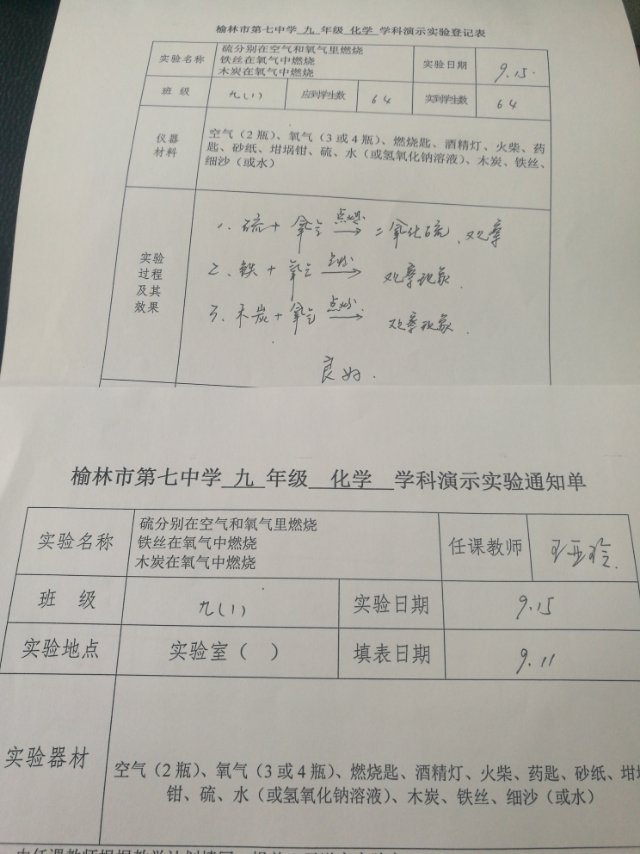 榆林市第七中学 九 年级 化学 学科演示实验登记表
实验名称
硫分别在空气和氧气里燃烧
铁丝在氧气中燃烧
木炭在氧气中燃烧
实验日期
9.15.
班 级
九(1)
应到学生数
64
实到学生数
64
仪器
材料
空气(2瓶)、氧气(3或4瓶)、燃烧匙、酒精灯、火柴、药
匙、砂纸、坩埚钳、硫、水(或氢氧化钠溶液)、木炭、铁丝、
细沙(或水)
实验
过程
及其
效果
1. 硫 + 氧气 点燃→ 二氧化硫、观察
2. 铁 + 氧气 点燃→ 观察现象.
3. 木炭 + 氧气 点燃→ 观察现象.
良好.
榆林市第七中学 九 年级 化学 学科演示实验通知单
实验名称
硫分别在空气和氧气里燃烧
铁丝在氧气中燃烧
木炭在氧气中燃烧
任课教师
班 级
九(1)
实验日期
9.15
实验地点
实验室( )
填表日期
9.11
实验器材
空气(2瓶)、氧气(3或4瓶)、燃烧匙、酒精灯、火柴、药匙、砂纸、坩埚
钳、硫、水(或氢氧化钠溶液)、木炭、铁丝、细沙(或水)